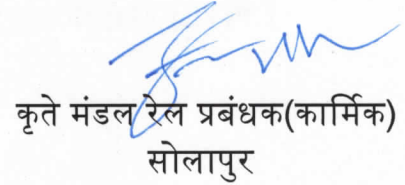 कृते मंडल रेल प्रबंधक(कार्मिक)
सोलापुर